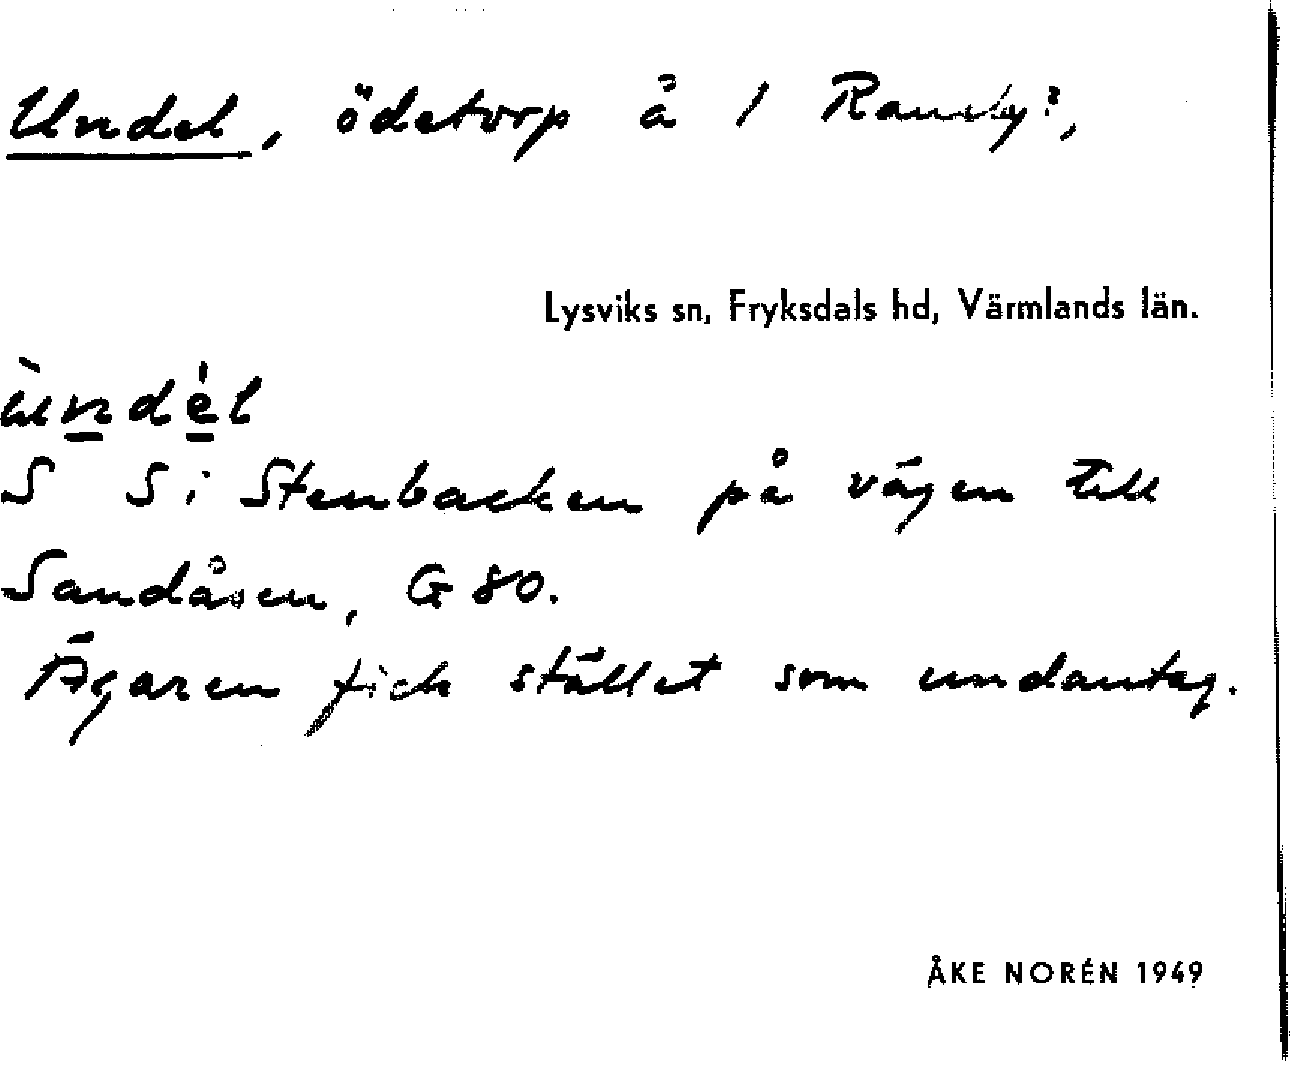 Undel, ödetorp å 1 Ransby?,
Lysviks sn, Fryksdals hd, Värmlands län.
ùndél
S S i Stenbacken på vägen till
Sandåsen, G 80.
Ägaren fick stället som undantag.
ÅKE NORÉN 1949